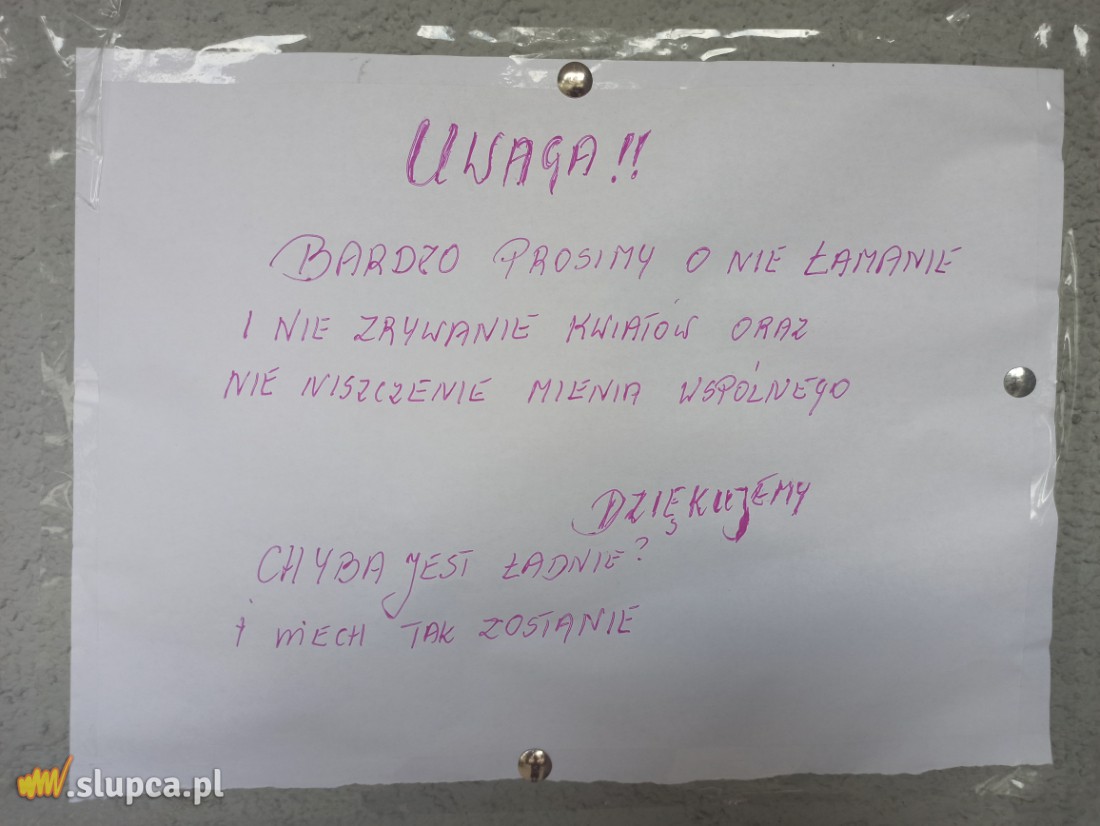 UWAGA!!
BARDZO PROSIMY O NIE ŁAMANIE
I NIE ZRYWANIE KWIATÓW ORAZ
NIE NISZCZENIE MIENIA WSPÓLNEGO
DZIĘKUJEMY
CHYBA JEST ŁADNIE?
i NIECH TAK ZOSTANIE
.slupca.pl